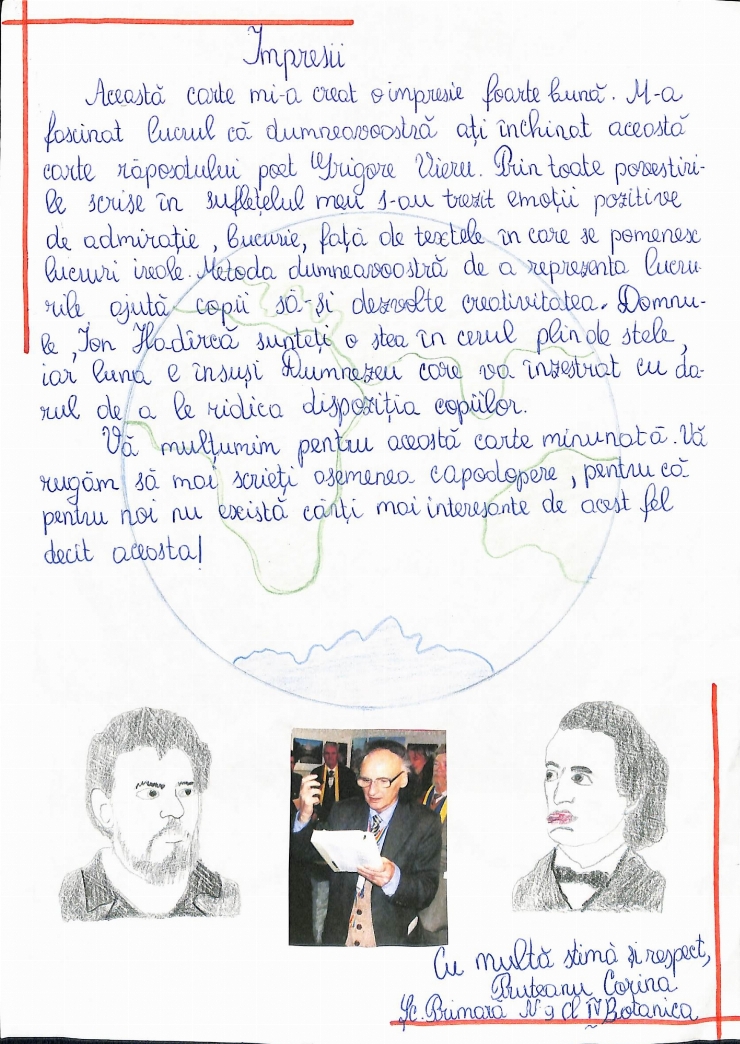 Impresii
Această carte mi-a creat o impresie foarte bună. M-a
fascinat lucrul că dumneavoastră ați închinat această
carte răposatului poet Grigore Vieru. Prin toate povestiri-
le scrise în sufletelul meu s-au trezit emoții pozitive
de admirație, bucurie, față de textele în care se pomenesc
lucruri ireale. Metoda dumneavoastră de a reprezenta lucru-
rile ajută copii să-și dezvolte creativitatea. Domnu-
le, Ion Hadîrcă sunteți o stea în cerul plin de stele,
iar luna e însuși Dumnezeu care va înzestrat cu da-
rul de a le ridica dispoziția copiilor.
Vă mulțumim pentru această carte minunată. Vă
rugăm să mai scrieți asemenea capodopere, pentru că
pentru noi nu există cărți mai interesante de acest fel
decit aceasta!
Cu multă stimă și respect,
Pruteanu Corina
Șc. Primară N 9 cl IV Botanica